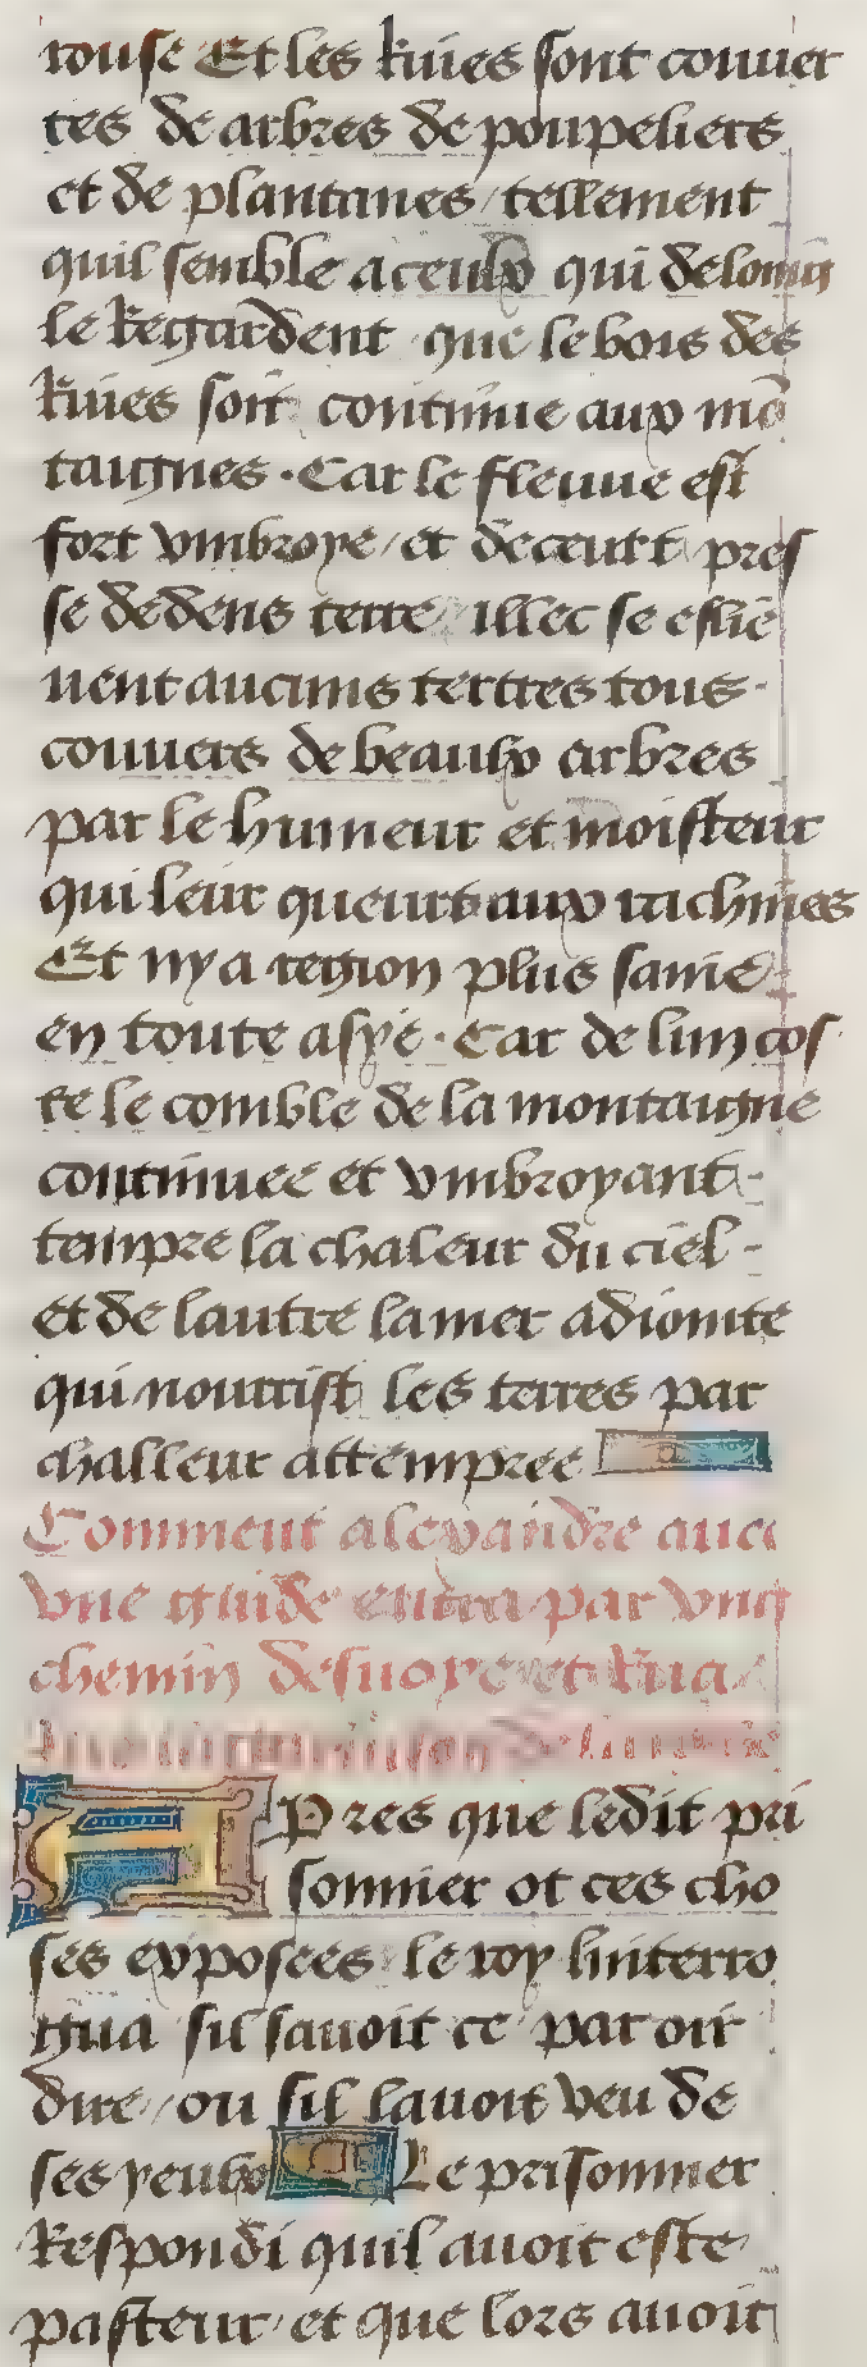 rouse Et les Riues sont couuer
tes de arbres de poupeliers
et de plantanes / tellement
quil semble a ceulx qui de loing
le Regardent que le bois des
Riues soit continue aux mō
taignes . Car le fleuue est
fort vmbroye / et decourt pres
se dedens terre illec se eslie
uent aucuns tertres tous
couuers de beaulx arbres
par le humeur et moisteur
qui leur queurt aux rachines
Et ny a region plus saine
en toute asye . Car de lun cos
te le comble de la montaigne
continuee et vmbroyant
tempre la chaleur du ciel
et de lautre la mer adiointe
qui nourrist les terres par
challeur attempree
Comment alexandre auec
vne guide entra par vng
chemin desuoye et Rua
APres que ledit pri
sonnier ot ces cho
ses exposees le roy linterro
gua sil sauoit ce par oir
dire / ou sil lauoit veu de
ses yeulx Le prisonnier
Respondi quil auoit este
pasteur / et que lors auoit